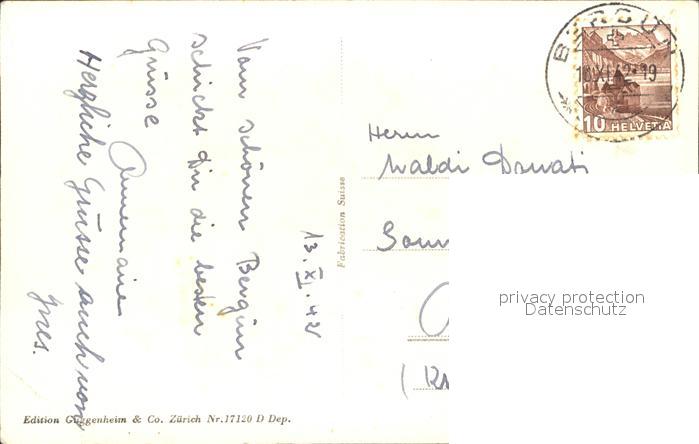 Vom schönen Bergün
schickt Dir die besten
Grüsse
Annemarie
Herzliche Grüsse auch von
Ines.
13. XI. 42
Fabrication Suisse
BERGÜN
10 HELVETIA
Herrn
Waldi Donati
privacy protection
Datenschutz
Edition Guggenheim & Co. Zürich Nr.17120 D Dep.